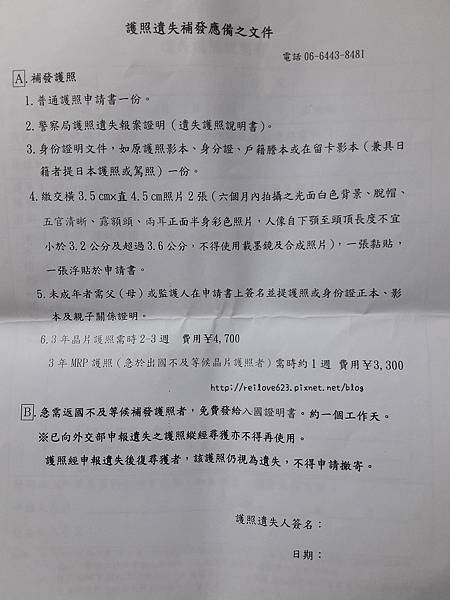 護照遺失補發應備之文件
電話 06-6443-8481
A.補發護照
1.普通護照申請書一份。
2.警察局護照遺失報案證明(遺失護照說明書)。
3.身份證明文件,如原護照影本、身分證、戶籍謄本或在留卡影本(兼具日
籍者提日本護照或駕照)一份。
4.繳交橫 3.5 cm×直 4.5 cm照片 2 張(六個月內拍攝之光面白色背景、脫帽、
五官清晰、露額頭、兩耳正面半身彩色照片,人像自下顎至頭頂長度不宜
小於 3.2 公分及超過 3.6 公分,不得使用載墨鏡及合成照片),一張黏貼,
一張浮貼於申請書。
5.未成年者需父(母)或監護人在申請書上簽名並提護照或身份證正本、影
本及親子關係證明。
6.3 年晶片護照需時 2-3 週 費用¥4,700
3 年 MRP 護照(急於出國不及等候晶片護照者)需時約 1 週 費用¥3,300
http://reilove623.pixnet.net/blog
B.急需返國不及等候補發護照者,免費發給入國證明書。約一個工作天。
※已向外交部申報遺失之護照縱經尋獲亦不得再使用。
護照經申報遺失後復尋獲者,該護照仍視為遺失,不得申請撤寄。
護照遺失人簽名:
日期: